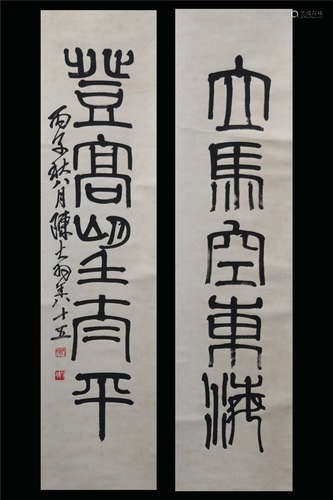 立馬空東海
登高望太平
丙子秋八月陳大羽年八十五